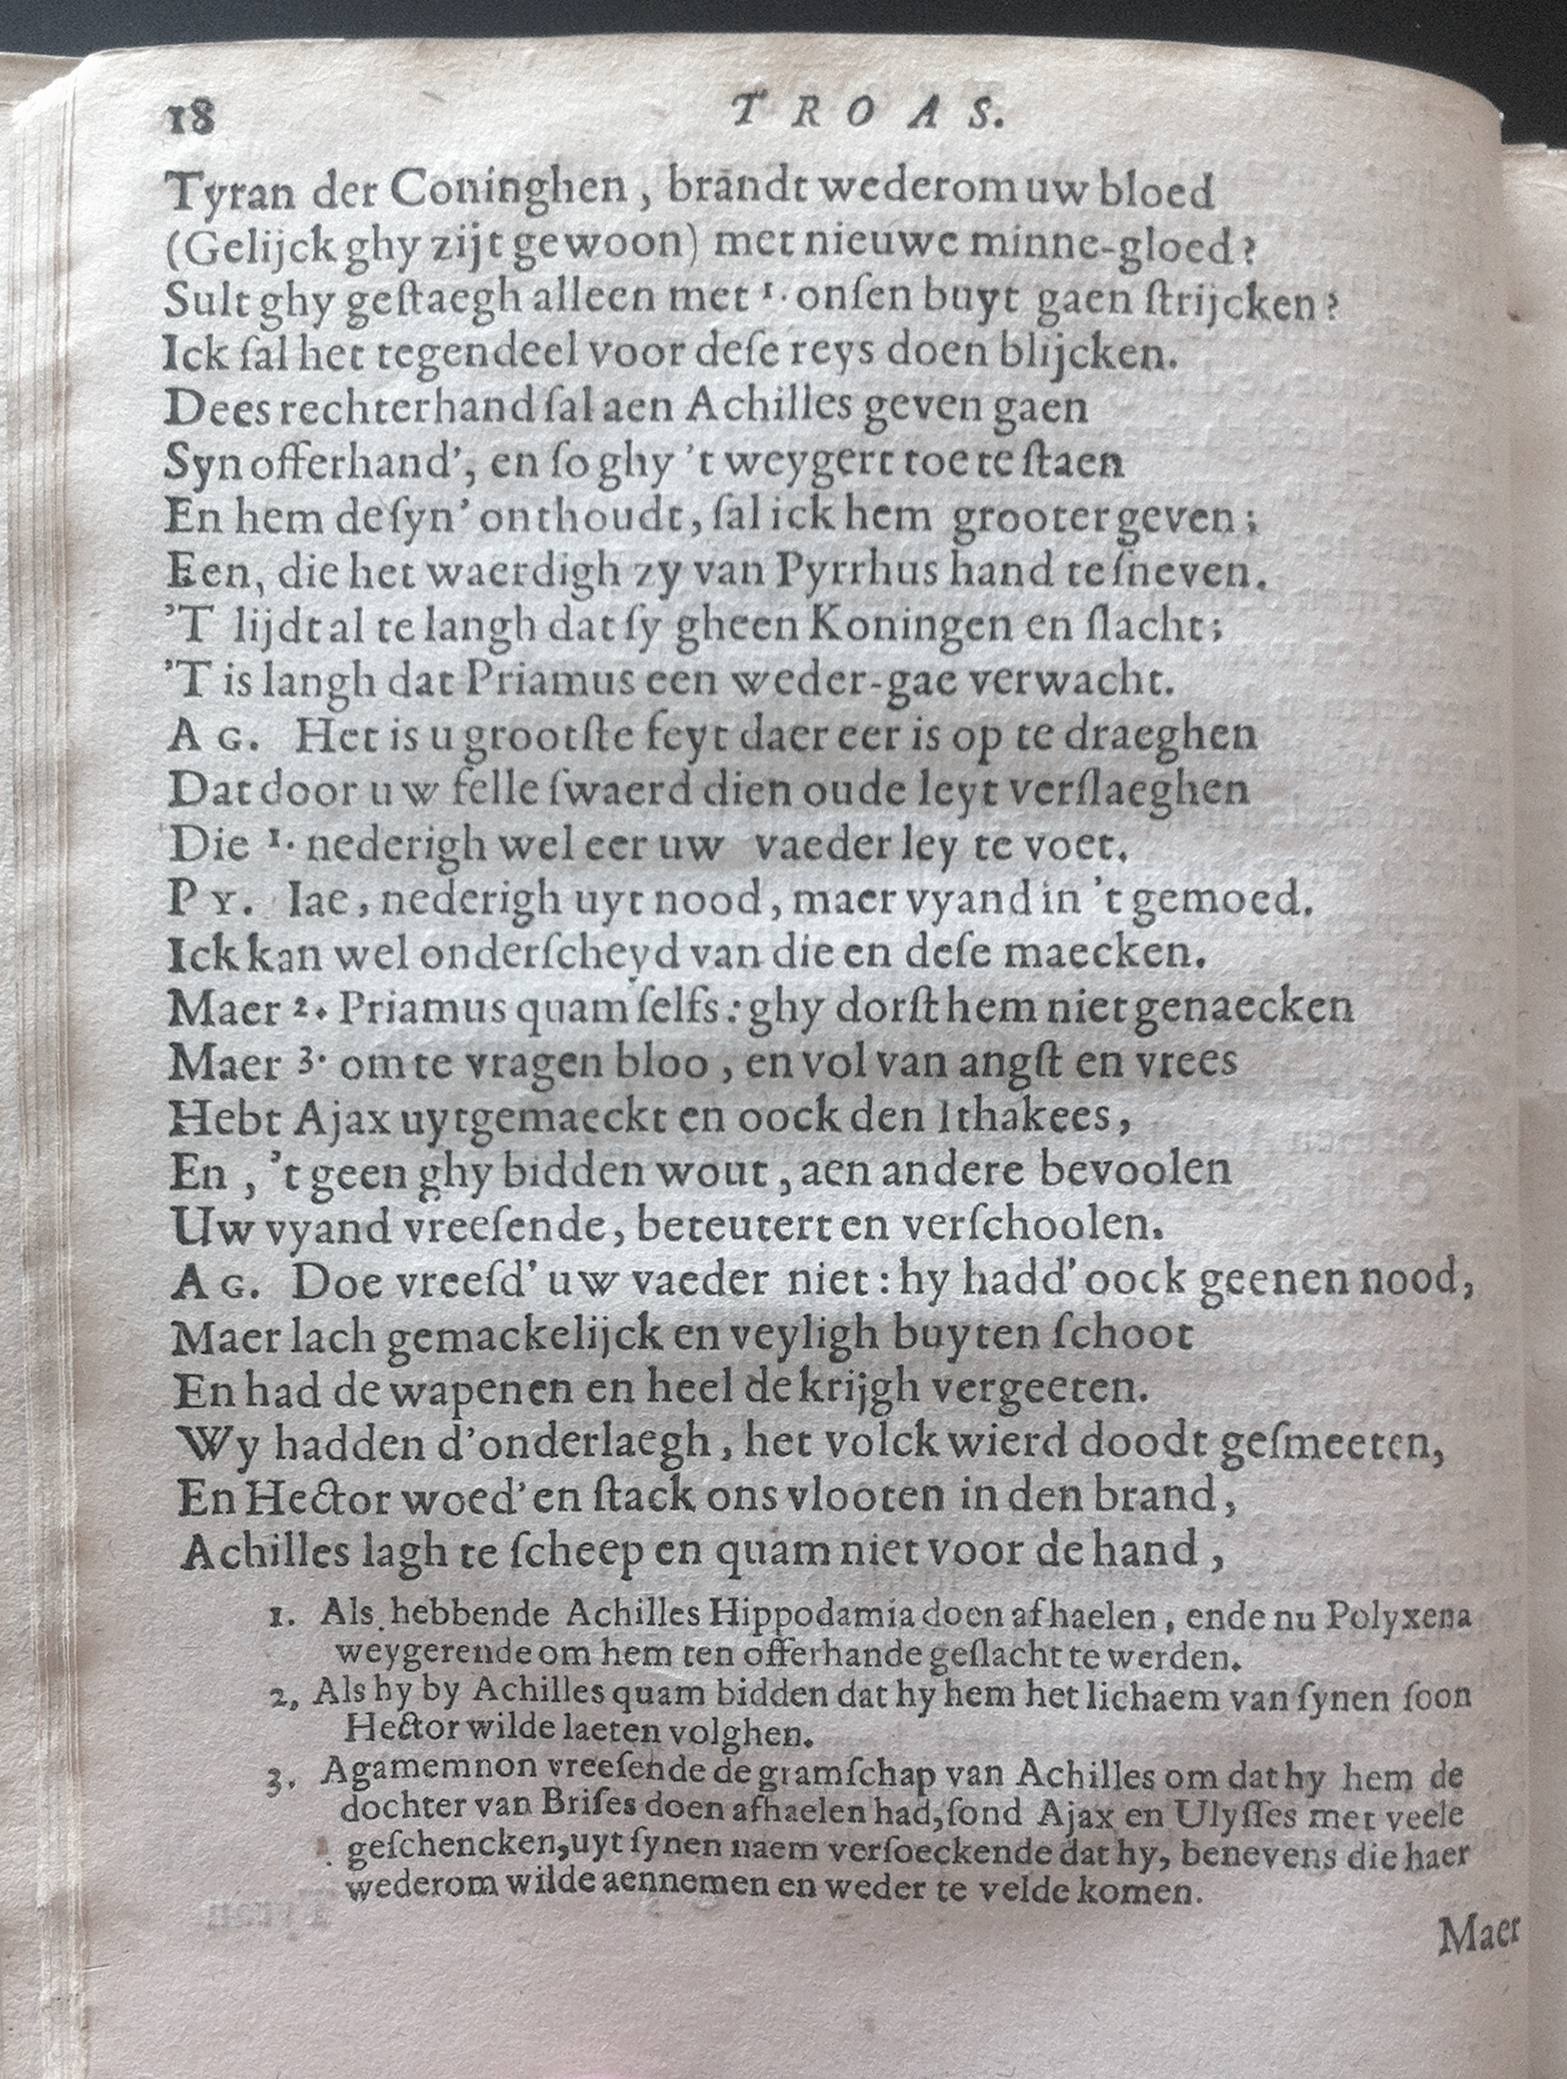 18 TROAS.
Tyran der Coninghen, brandt wederom uw bloed
(Gelijck ghy zijt gewoon) met nieuwe minne-gloed?
Sult ghy geſtaegh alleen met 1. onſen buyt gaen ſtrijcken?
Ick ſal het tegendeel voor deſe reys doen blijcken.
Dees rechterhand ſal aen Achilles geven gaen
Syn offerhand', en ſo ghy 't weygert toe te ſtaen
En hem de ſyn' onthoudt, ſal ick hem grooter geven;
Een, die het waerdigh zy van Pyrrhus hand te ſneven.
'T lijdt al te langh dat ſy gheen Koningen en ſlacht;
'T is langh dat Priamus een weder-gae verwacht.
AG. Het is u grootſte feyt daer eer is op te draeghen
Dat door uw felle ſwaerd dien oude leyt verſlaeghen
Die 1. nederigh wel eer uw vaeder ley te voet.
PY. Iae, nederigh uyt nood, maer vyand in 't gemoed.
Ick kan wel onderſcheyd van die en deſe maecken.
Maer 2. Priamus quam ſelfs: ghy dorſt hem niet genaecken
Maer 3. om te vragen bloo, en vol van angſt en vrees
Hebt Ajax uytgemaeckt en oock den Ithakees,
En, 't geen ghy bidden wout, aen andere bevoolen
Uw vyand vreeſende, beteutert en verſchoolen.
AG. Doe vreeſd' uw vaeder niet: hy hadd' oock geenen nood,
Maer lach gemackelijck en veyligh buyten ſchoot
En had de wapenen en heel de krijgh vergeeten.
Wy hadden d'onderlaegh, het volck wierd doodt geſmeeten,
En Hector woed' en ſtack ons vlooten in den brand,
Achilles lagh te ſcheep en quam niet voor de hand,
1. Als hebbende Achilles Hippodamia doen afhaelen, ende nu Polyxena
weygerende om hem ten offerhande geſlacht te werden.
2, Als hy by Achilles quam bidden dat hy hem het lichaem van ſynen ſoon
Hector wilde laeten volghen.
3. Agamemnon vreeſende de gramſchap van Achilles om dat hy hem de
dochter van Briſes doen afhaelen had, ſond Ajax en Ulyſſes met veele
geſchencken, uyt ſynen naem verſoeckende dat hy, benevens die haer
wederom wilde aennemen en weder te velde komen.
Maer